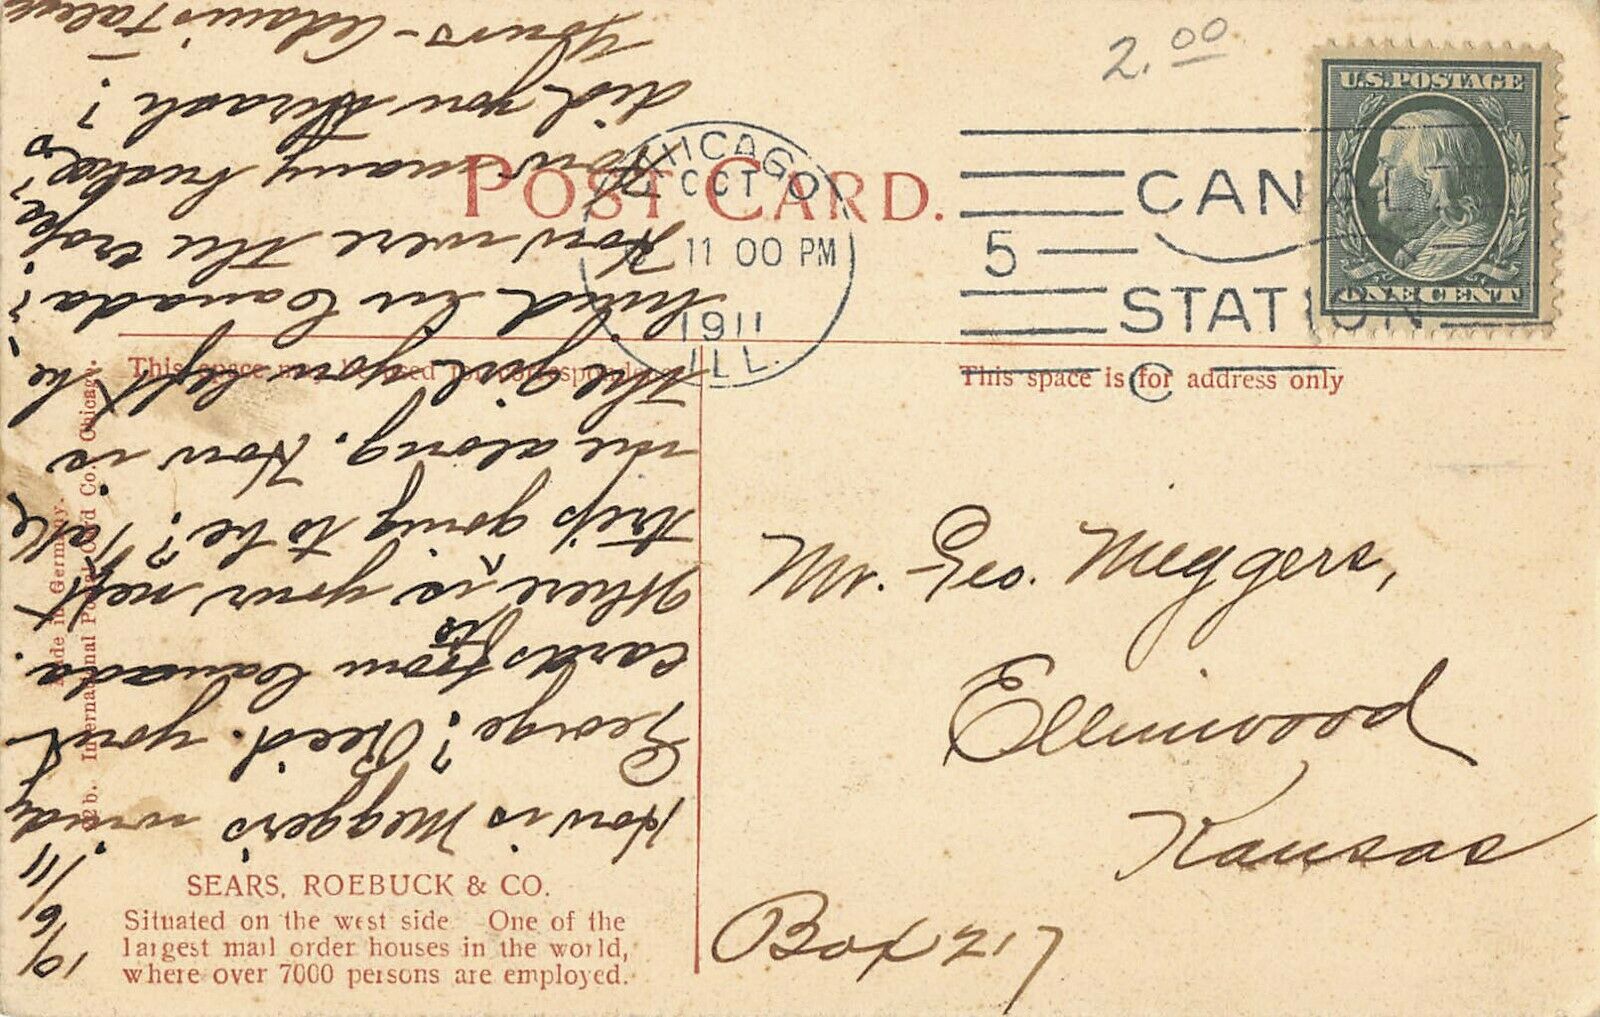 2.00
U.S.POSTAGE
ONE CENT
CHICAGO
OCT
11 00 PM
1911
ILL.
5
CANAL ST.
STATION
C
POST CARD.
This space may be used for correspondence
This space is for address only
Mr. Geo. Meggers,
Ellinwood
Kansas
Box 217
10/6/11
How is Meggers windy
George? Recd. your
cards from to Canada.
Where is your next
trip going to be? Take
me along. How is
the girl you left be-
hind in Canada?
How were the crops?
How many bushels
did you thrash?
Yours - Adam
Made in Germany.
International Postal Card Co. Chicago.
SEARS, ROEBUCK & CO.
Situated on the west side One of the
largest mail order houses in the world,
where over 7000 persons are employed.